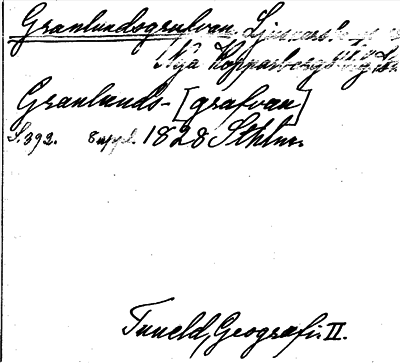 Granlundsgrufvan, Ljusnarsbergs
Nya Kopparbergs
Granlunds-[grufvan]
S. 392. Suppl. 1828 Sthlm.
Tuneld, Geografi. II.